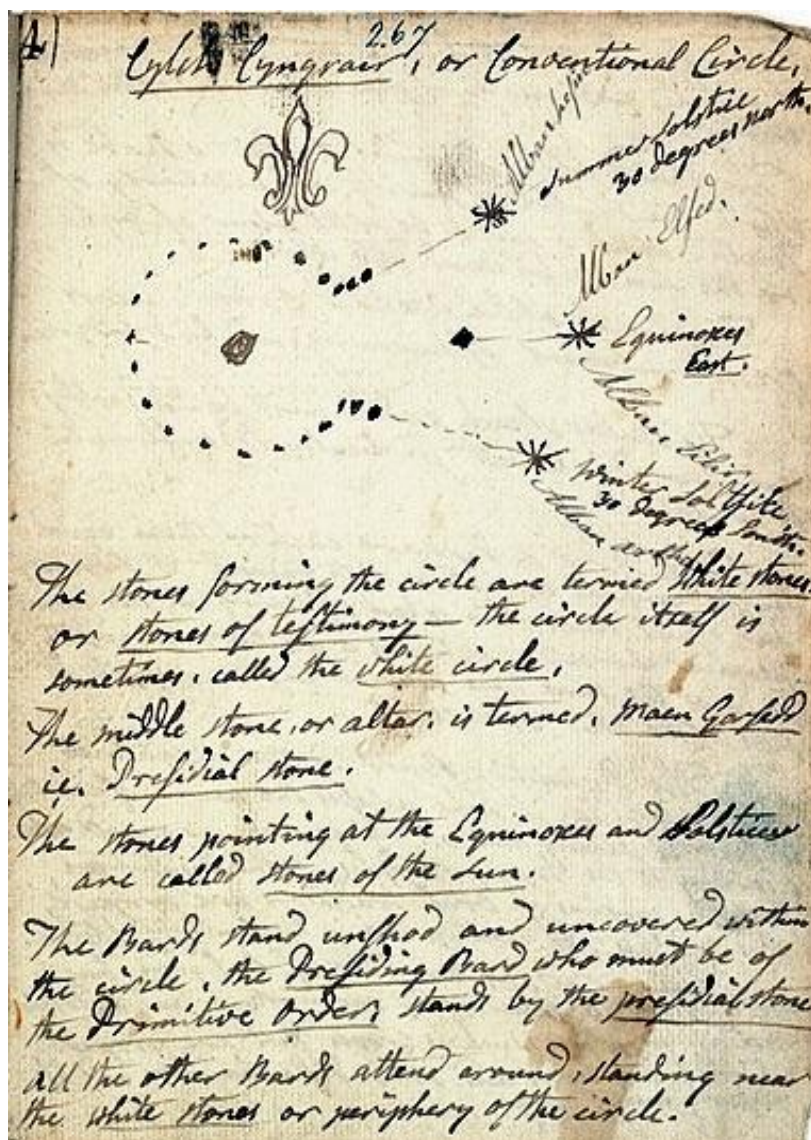 4)
267
Cylch Cyngrair, or Conventional Circle,
Alban hefin
Summer Solstice
30 degrees north.
Alban Elfed.
Equinoxes
East.
Alban Eilir
Winter Solstice
30 degrees South.
Alban arthan
The stones forming the circle are termed white stones
or stones of testimony — the circle itself is
sometimes, called the white circle,
The middle stone, or altar, is termed, Maen Gorsedd
ie. Presidial stone.
The stones pointing at the Equinoxes and Solstices
are called stones of the sun.
The Bards stand unshod and uncovered within
the circle, the Presiding Bard who must be of
the Primitive order, stands by the presidial stone
all the other Bards attend around, standing near
the white stones or periphery of the circle.